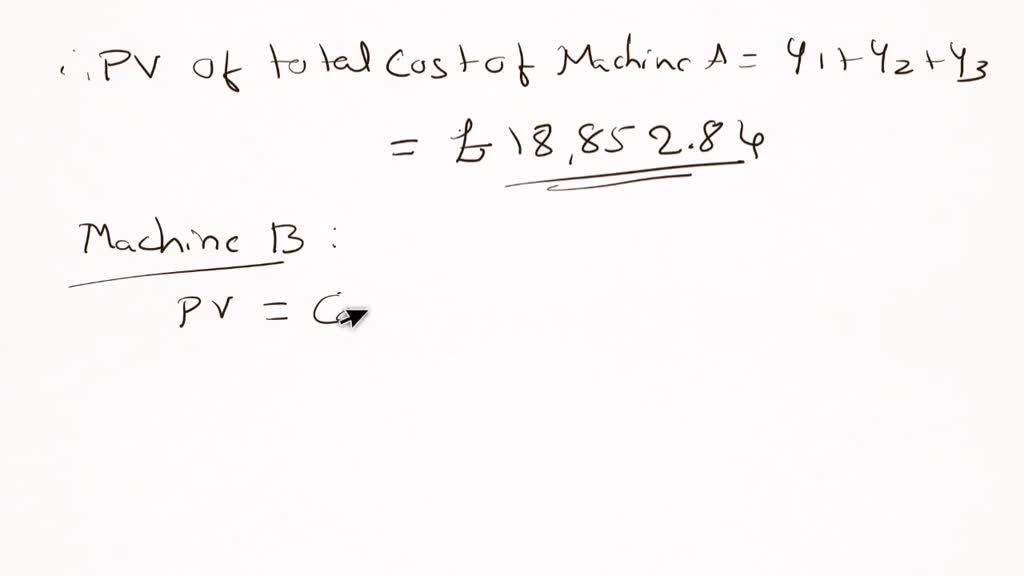 ∴ PV of total Cost of Machine A = y1+y2+y3
= £18,852.84
Machine B :
PV = C